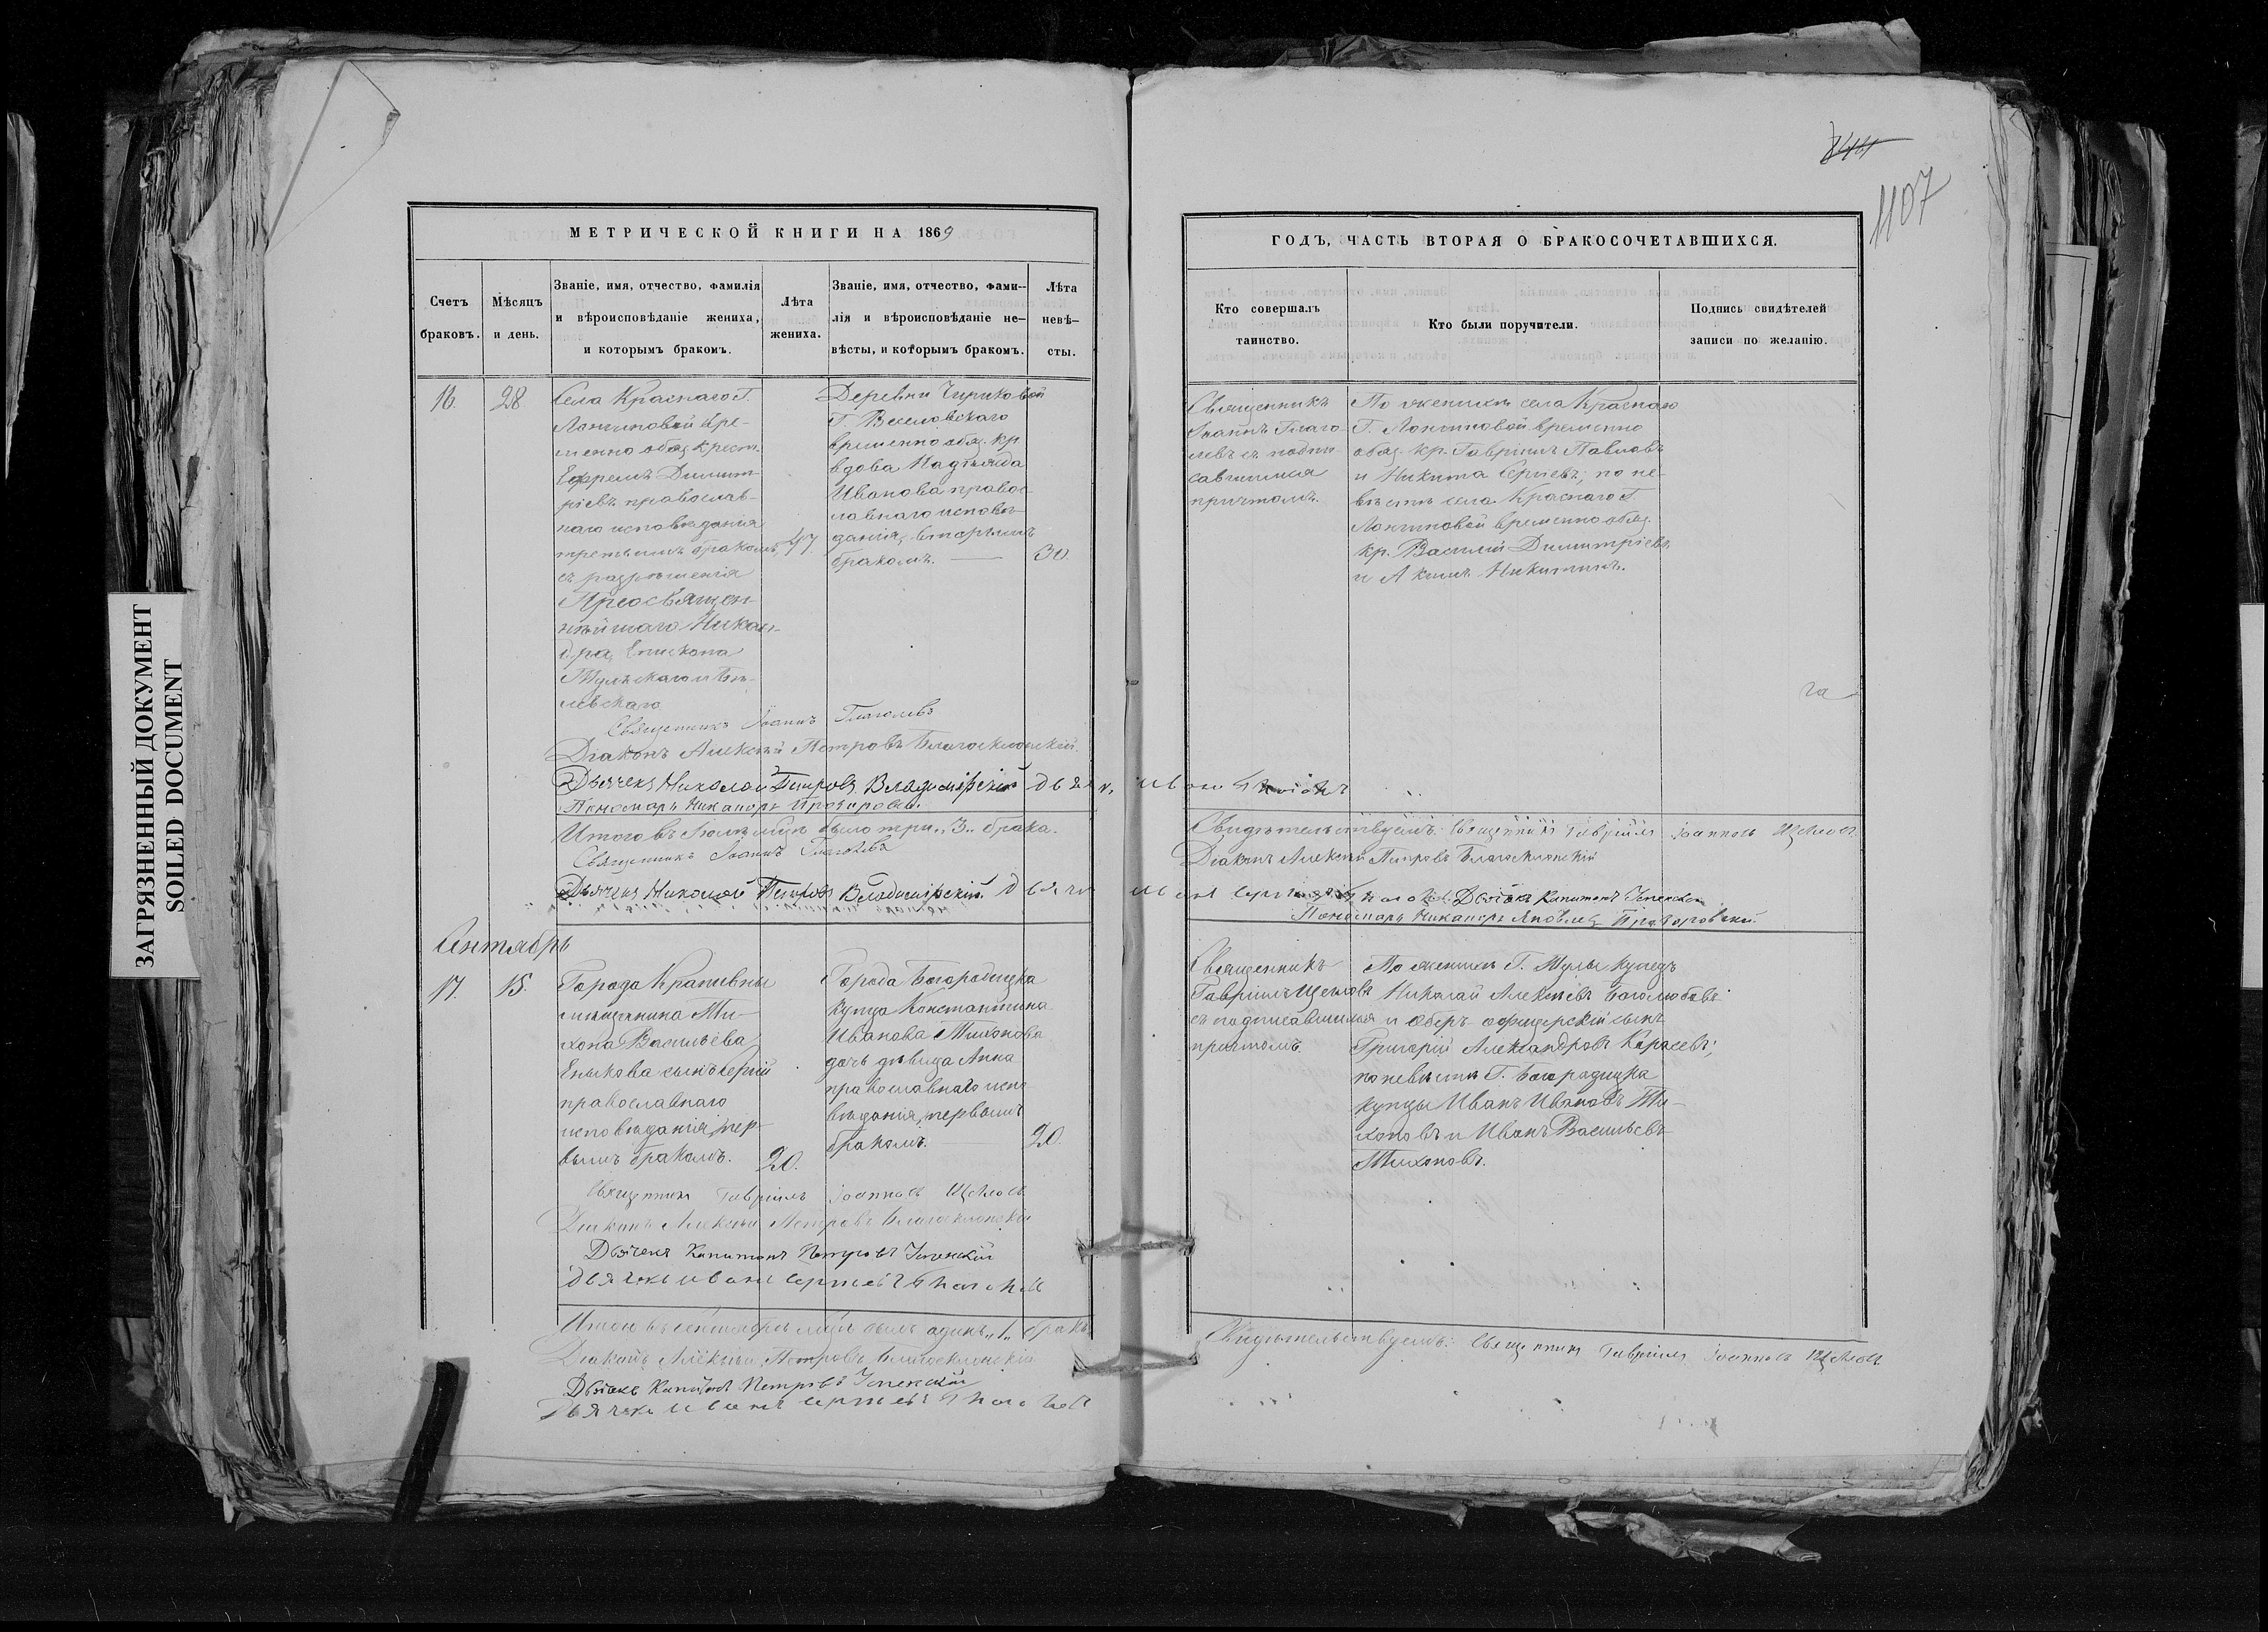 8441
1107
МЕТРИЧЕСКОЙ КНИГИ НА 1869
Счетъ браковъ.
Мѣсяцъ и день.
Званіе, имя, отчество, фамилія
и вѣроисповѣданіе жениха,
и которымъ бракомъ.
Лѣта
жениха.
Званіе, имя, отчество, фами-
лія и вѣроисповѣданіе не-
вѣсты, и которымъ бракомъ.
Лѣта
невѣ-
сты.
16.
28
Села Краснаго Г.
Лонгиновой вре-
менно обяз. крест.
Ефремъ Димит-
ріевъ православ-
наго исповѣданія
третьимъ бракомъ,
съ разрѣшенія
Преосвящен-
нѣйшаго Никан-
дра, Епископа
Тульскаго и Бѣ-
левскаго
47
Деревни Чириковой
Г. Веселовскаго
временно обяз. кр.
вдова Надѣжда
Иванова правос-
лавнаго исповѣ-
данія, вторымъ
бракомъ.
30.
Священникъ Іоаннъ Глаголевъ
Діаконъ Алексѣй Петровъ Благосклонскій.
Дьячекъ Николай Петровъ Владимірскій
Пономарь Никаноръ
Итого въ Іюлѣ м-цѣ было три „3„ брака.
Священникъ Іоаннъ Глаголевъ
Дьячекъ Николай Петровъ Владимірскій.
Сентябрь
17.
15.
Города Крапивны
мѣщанина Ти-
хона Васильева
сынъ Сергій
православнаго
исповѣданія, пер-
вымъ бракомъ.
20.
Города Богородицка
купца Константина
Иванова Тихонова
дочь дѣвица Анна
православнаго испо-
вѣданія, первымъ
бракомъ.
20.
Священникъ Гавріилъ Іоанновъ Щегловъ
Діаконъ Алексѣй Петровъ Благосклонскій
Дьячекъ Капитонъ Петровъ Успенскій
Дьячекъ Иванъ Сергеевъ
Итого въ Сентябрѣ м-цѣ былъ одинъ „1„ бракъ.
Діаконъ Алексѣй Петровъ Благосклонскій
Дьячекъ Капитонъ Петровъ Успенскій
Дьячекъ Иванъ Сергеевъ
ГОДЪ, ЧАСТЬ ВТОРАЯ О БРАКОСОЧЕТАВШИХСЯ.
Кто совершалъ
таинство.
Кто были поручители.
Подпись свидѣтелей
записи по желанію.
Священникъ
Іоаннъ Глаго-
левъ съ подпи-
савшимся
причтомъ.
По женихѣ села Краснаго
Г. Лонгиновой временно
обяз. кр. Гавріилъ Павловъ
и Никита Сергѣевъ; по не-
вѣстѣ села Краснаго Г.
Лонгиновой временно обяз.
кр. Василій Димитріевъ
и Акимъ Никитинъ.
Свидѣтельствуемъ: Священникъ Гавріилъ Іоанновъ Щегловъ
Діаконъ Алексѣй Петровъ Благосклонскій
Дьячекъ Капитонъ Успенскій
Пономарь Никаноръ Яковлевъ
Священникъ
Гавріилъ Щегловъ
съ подписавшимся
причтомъ.
По женихѣ Г. Тулы купецъ
Николай Алексѣевъ Боголюбовъ
и Оберъ-офицерскій сынъ
Григорій Александровъ Карасевъ;
по невѣстѣ Г. Богородицка
купцы Иванъ Ивановъ Ти-
хоновъ и Иванъ Васильевъ
Тихоновъ.
Свидѣтельствуемъ: Священникъ Гавріилъ Іоанновъ Щегловъ
ЗАГРЯЗНЕННЫЙ ДОКУМЕНТ
SOILED DOCUMENT